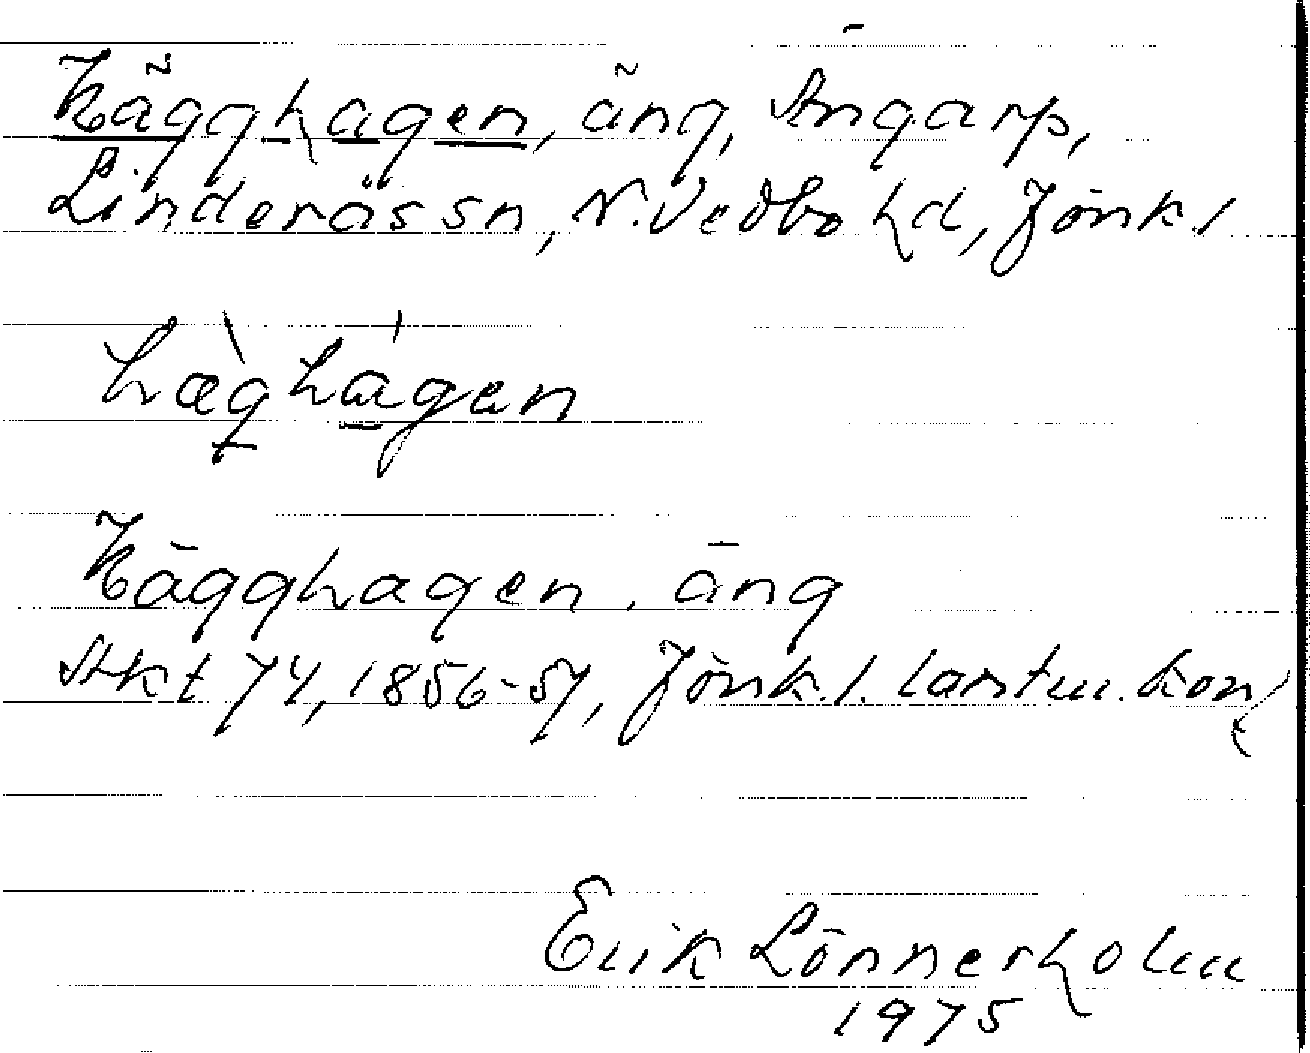 Hägghagen, äng, Ängarp,
Linderås sn, N. Vedbo hd, Jönk. l
hæ̀ghágen
Hägghagen, äng
Akt 74, 1856-57, Jönk. l. lantm. kon
Erik Lönnerholm
1975